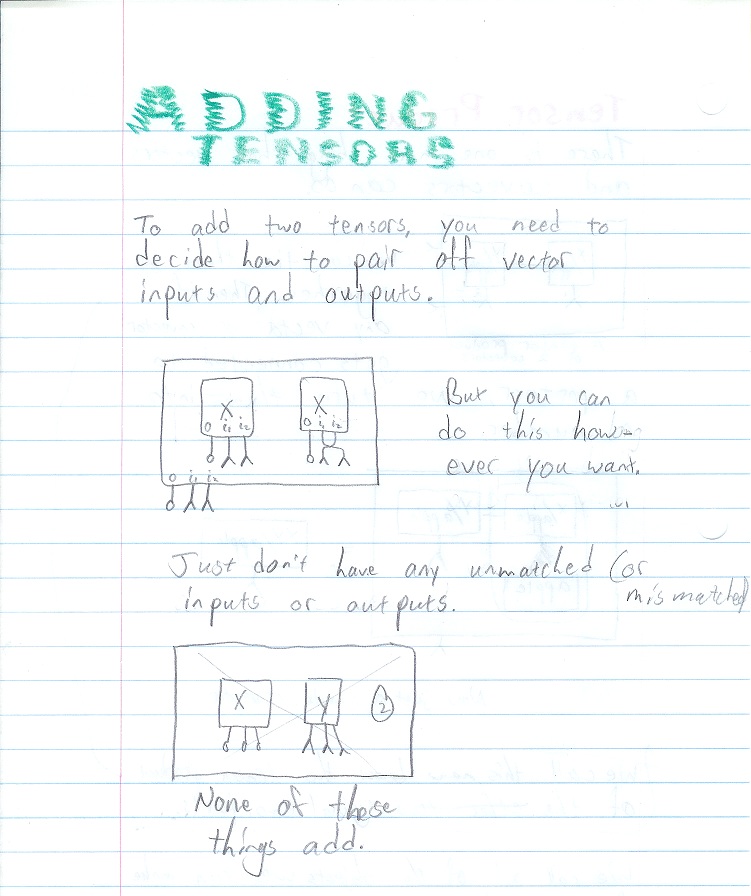 ADDING
TENSORS
To add two tensors, you need to
decide how to pair off vector
inputs and outputs.
X
o i₁ i₂
X
o i₁ i₂
o i₁ i₂
But you can
do this how-
ever you want.
Just don't have any unmatched (or
mismatched
inputs or outputs.
X
Y
2
None of these
things add.